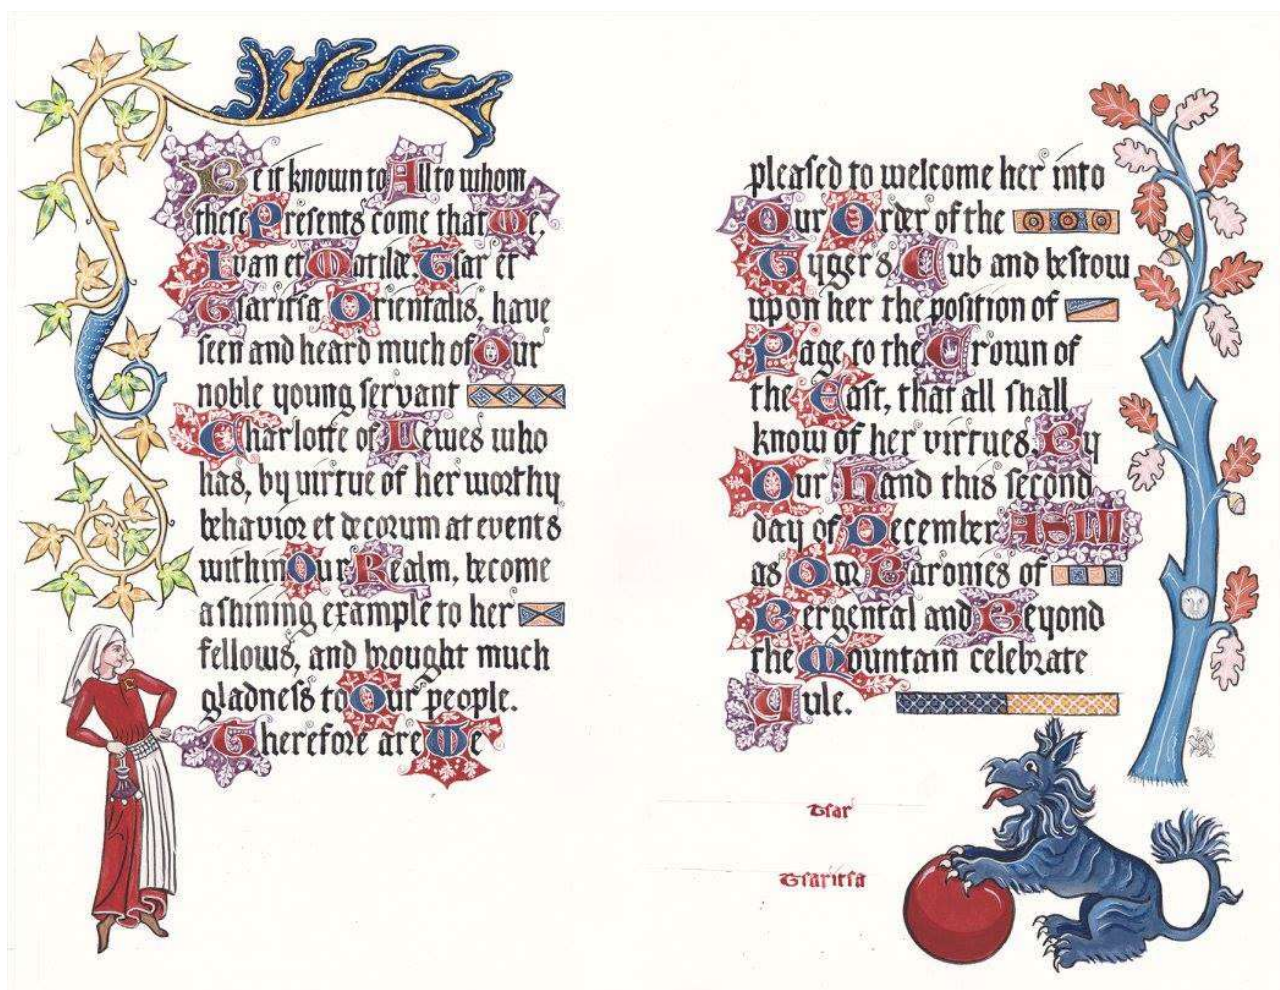 Be it known to All to whom
these Presents come that We,
Ivan et Matilde, Tsar et
Tsaritsa Orientalis, have
seen and heard much of Our
noble young servant
Charlotte of Lewes who
has, by virtue of her worthy
behavior et decorum at events
within Our Realm, become
a shining example to her
fellows, and brought much
gladness to Our people.
Therefore are We
pleased to welcome her into
Our Order of the
Tyger's Cub and bestow
upon her the position of
Page to the Crown of
the East, that all shall
know of her virtues. By
Our Hand this second
day of December
as Our Baronies of
Bergental and Beyond
the Mountain celebrate
Yule.
Tsar
Tsaritsa